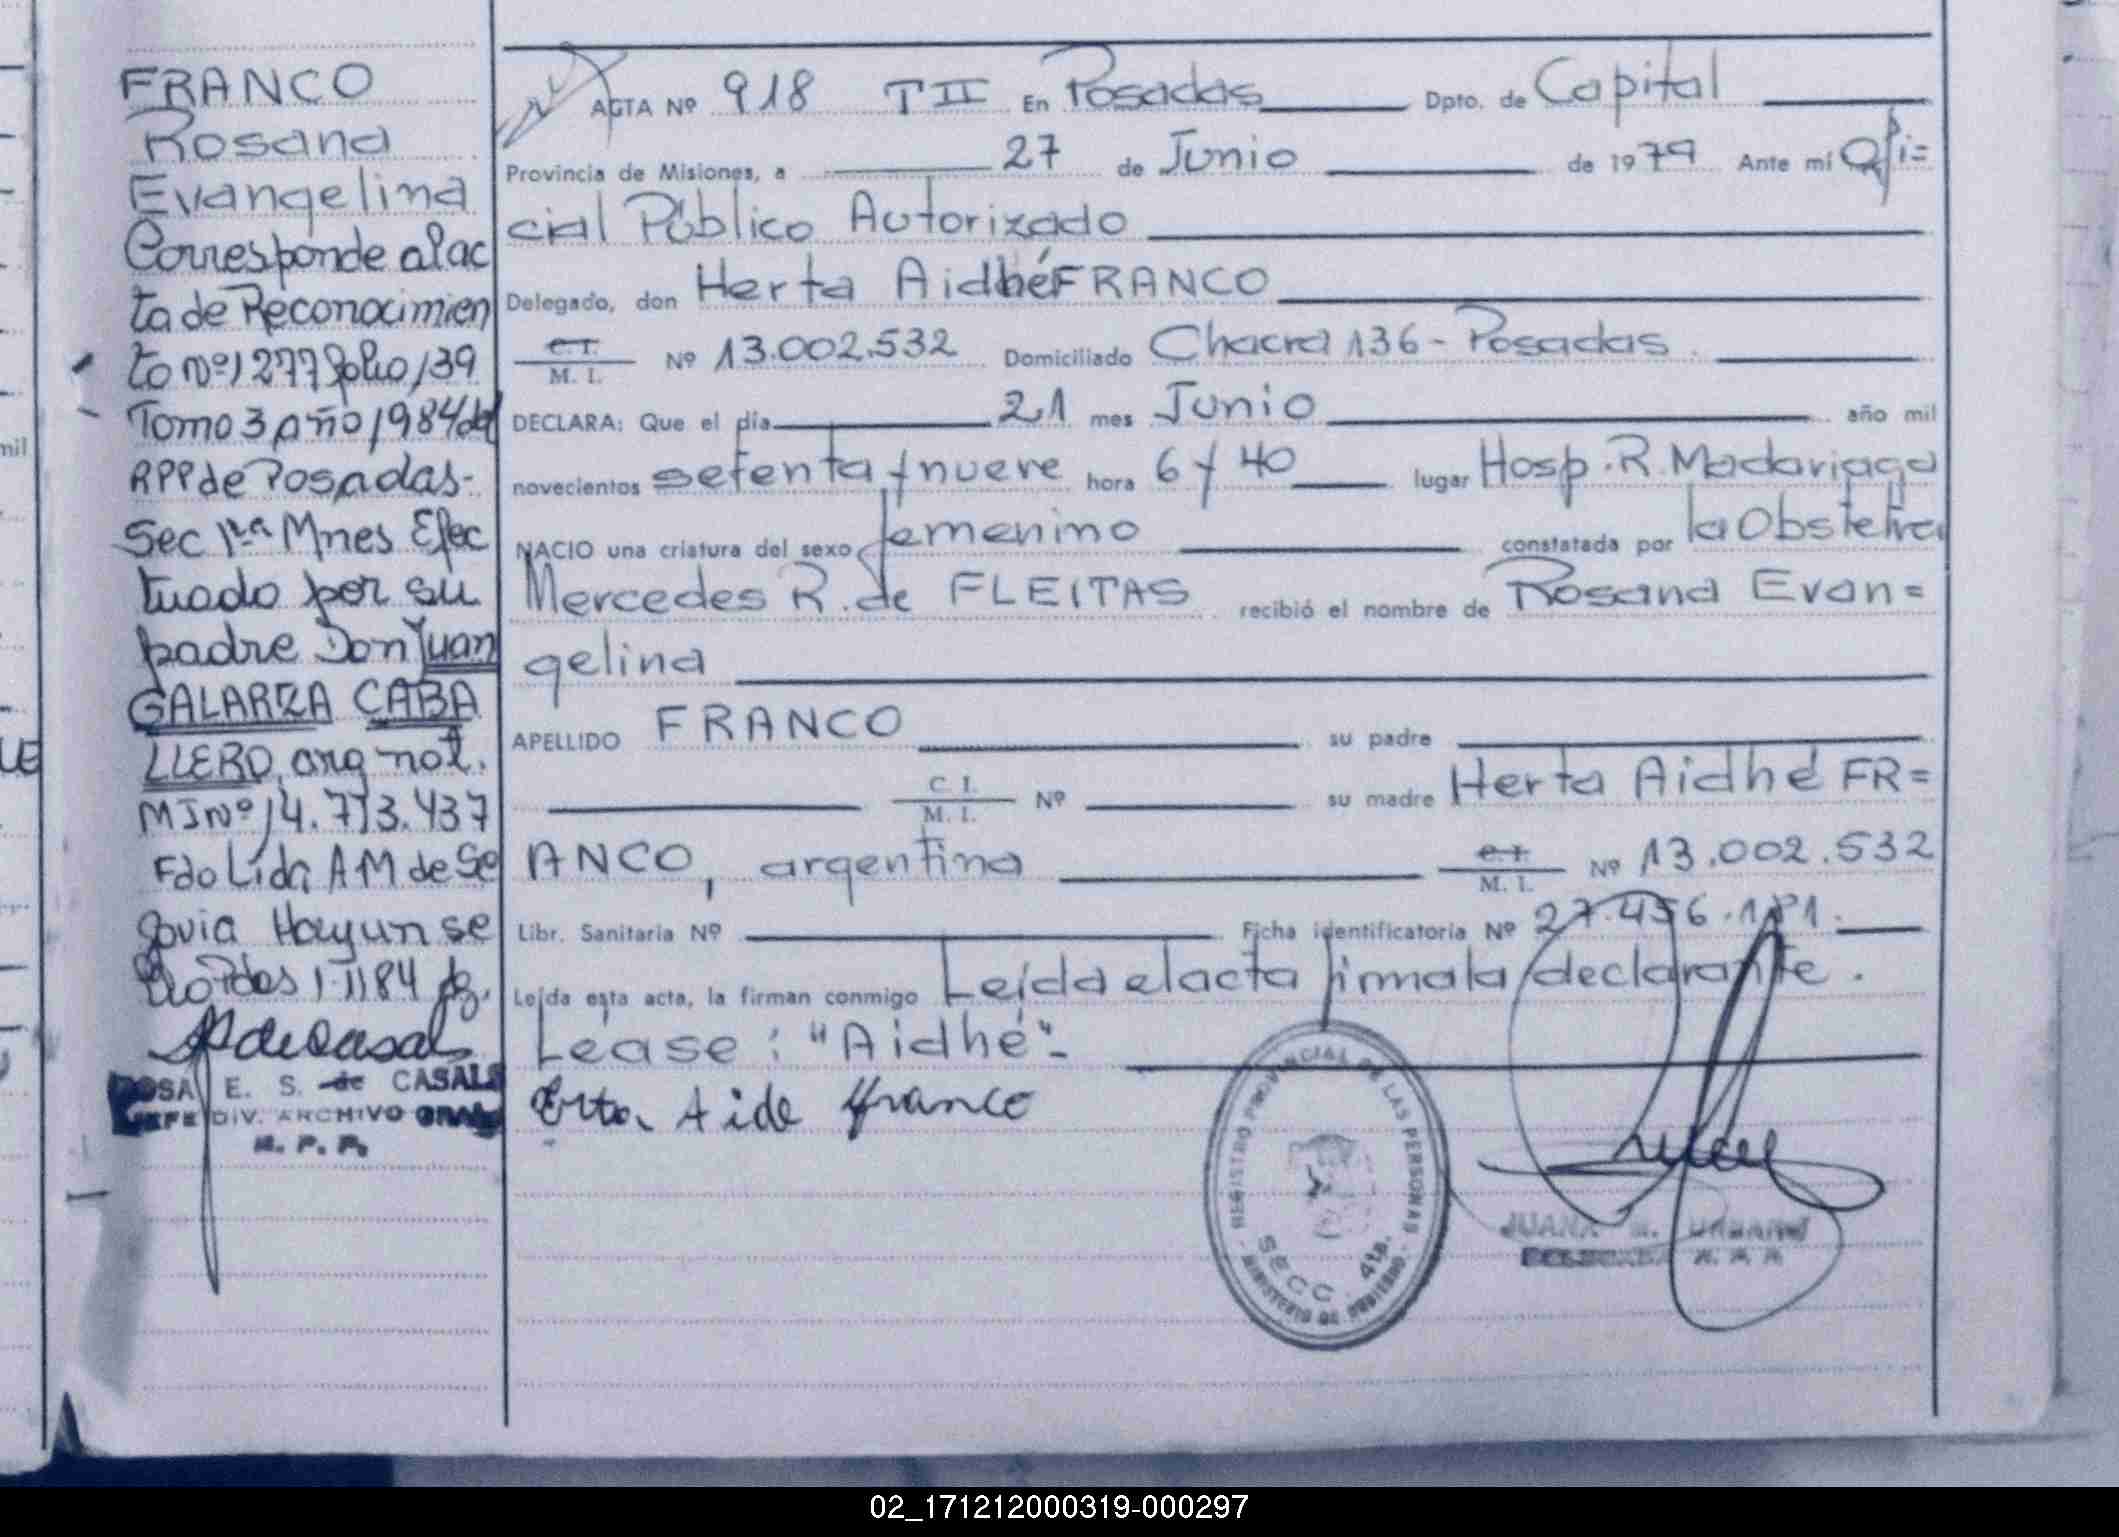 FRANCO
Rosana
Evangelina
Corresponde al ac
ta de Reconocimien
to Nº 1277 folio 139
Tomo 3 año 1984 del
RPP de Posadas-
Sec 1ra Mnes Efec
tuado por su
padre Don Juan
GALARZA CABA
LLERO, arg nat.
MI Nº 14.713.437
Fdo Lida A M de Se
govia Hay un se
llo Pdas
ROSA E. S. de CASALS
JEFE DIV. ARCHIVO GRAL
R. P. P.
ACTA Nº 918 T II En Posadas Dpto. de Capital
Provincia de Misiones, a 27 de Junio de 1979 Ante mí Ofi=
cial Público Autorizado
Delegado, don Herta Aidhé FRANCO
C. I. / M. I. Nº 13.002.532 Domiciliado Chacra 136 - Posadas
DECLARA: Que el día 21 mes Junio año mil
novecientos setenta y nueve hora 6 y 40 lugar Hosp. R. Madariaga
NACIO una criatura del sexo femenino constatada por la Obstetra
Mercedes R. de FLEITAS recibió el nombre de Rosana Evan=
gelina
APELLIDO FRANCO su padre
C. I. / M. I. Nº su madre Herta Aidhé FR=
ANCO, argentina C. I. / M. I. Nº 13.002.532
Libr. Sanitaria Nº Ficha identificatoria Nº 27.456.181.
Leída esta acta, la firman conmigo Leída el acta firma la declarante.
Léase: "Aidhé"-
Erta Aide Franco
REGISTRO PROVINCIAL DE LAS PERSONAS
SECC. 4ta.
MINISTERIO DE GOBIERNO
JUANA
02_171212000319-000297